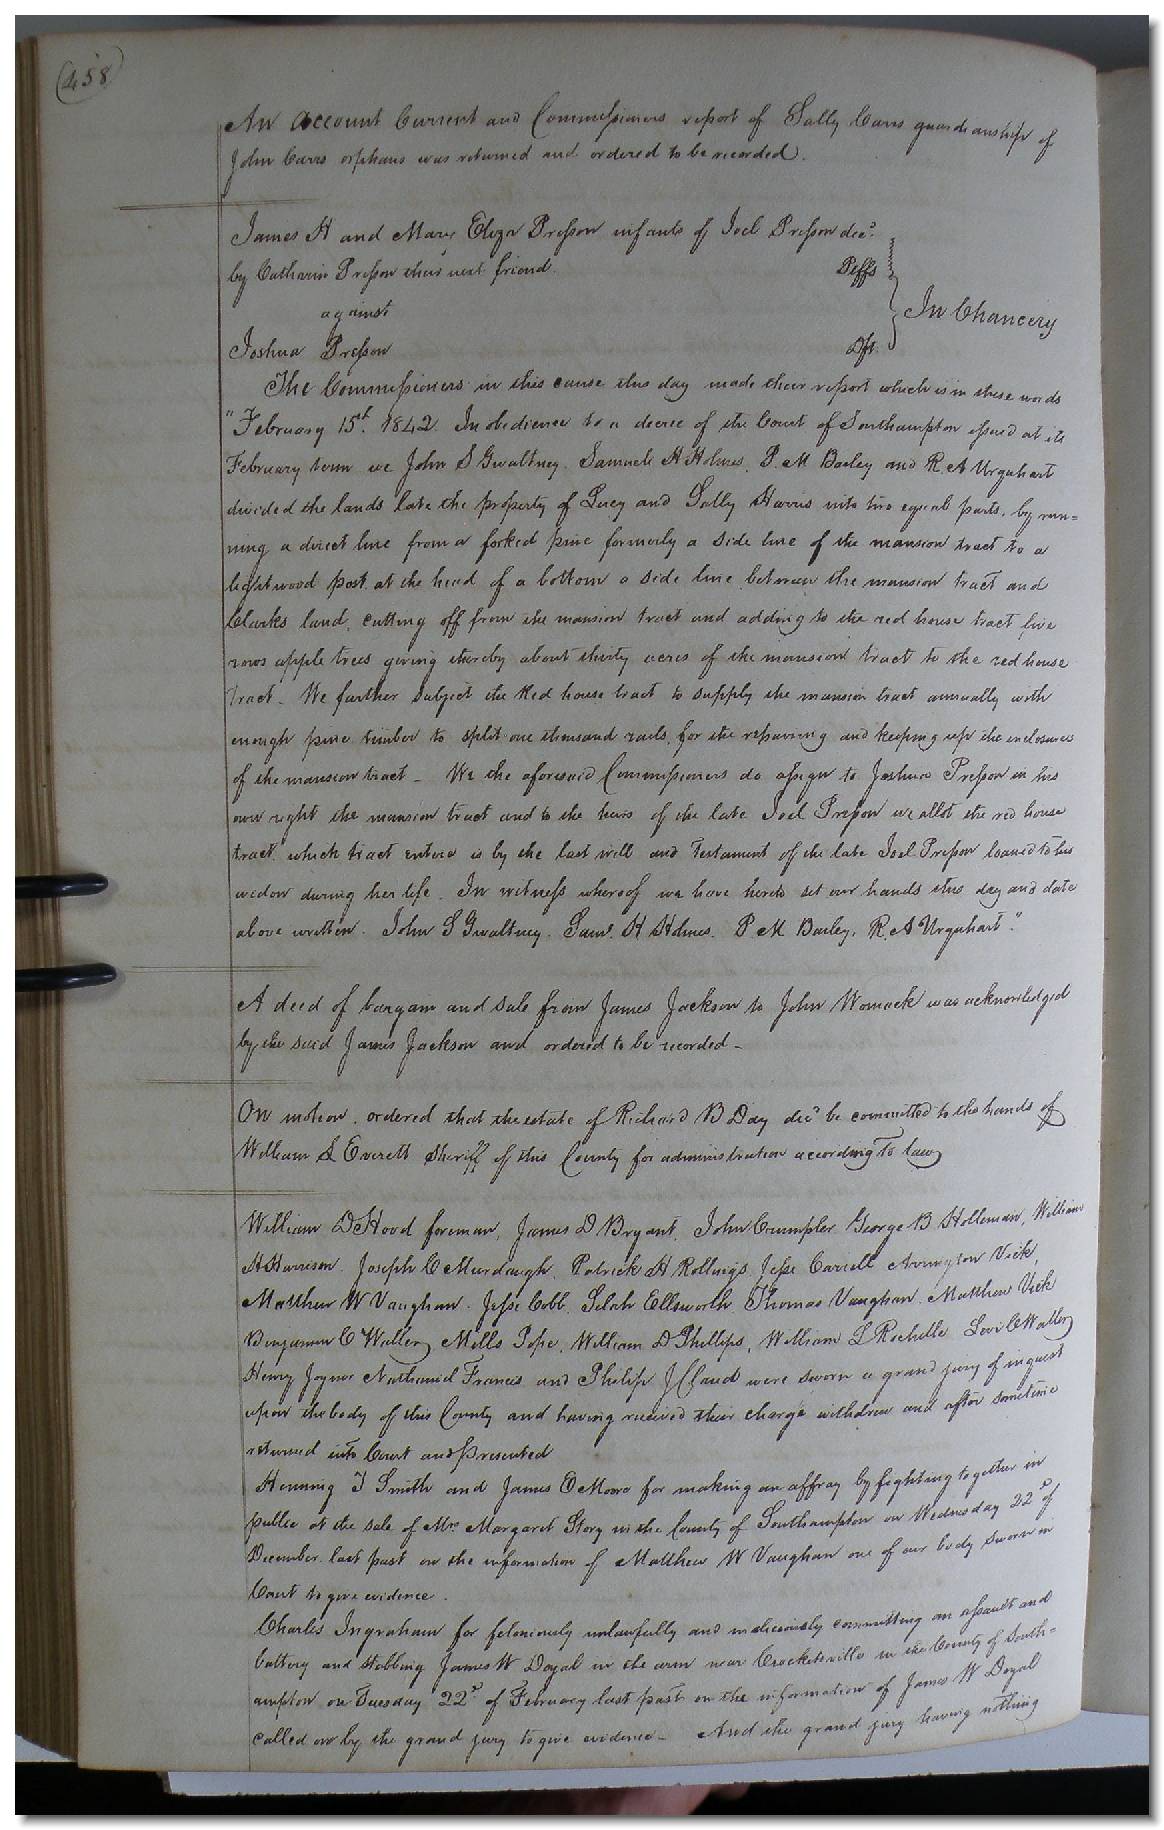 (458)
An account Current and Commissioners report of Sally Carrs guardianship of
John Carrs orphans was returned and ordered to be recorded.
James H and Mary Eliza Presson infants of Joel Presson decd
by Catharin Presson their next friend Plffs
against
In Chancery
Joshua Presson Dft.
The Commissioners in this cause this day made their report which is in these words
"February 15th. 1842. In obedience to a decree of the Court of Southampton issued at its
February term we John S Gwaltney. Samuel H Holmes, P. M Barley and R. A Urquhart
divided the lands late the property of Lucy and Sally Harris into two equal parts, by run=
ning a direct line from a forked pine formerly a side line of the mansion tract to a
lightwood post at the head of a bottom a side line between the mansion tract and
Clarks land, cutting off from the mansion tract and adding to the red house tract five
rows apple trees giving thereby about thirty acres of the mansion tract to the red house
tract. We farther subject the Red house tract to supply the mansion tract annually with
enough pine timber to split one thousand rails, for the repairing and keeping up the inclosures
of the mansion tract - We the aforesaid Commissioners do assign to Joshua Presson in his
own right the mansion tract and to the heirs of the late Joel Presson we allot the red house
tract which tract entire is by the last will and Testament of the late Joel Presson loaned to his
widow during her life. In witness whereof we have hereto set our hands this day and date
above written. John S Gwaltney. Saml. H Holmes. P. M Barley. R. A Urquhart."
A deed of bargain and sale from James Jackson to John Womack was acknowledged
by the said James Jackson and ordered to be recorded -
On motion, ordered that the estate of Richard B Day decd be committed to the hands of
William S Everett Sheriff of this County for administration according to law
William D Hood foreman, James D Bryant, John Crumpler George B Holleman, William
H Harrison. Joseph C Murdaugh, Patrick H Rollings Jesse Carrell Arrington Vick,
Matthew W Vaughan. Jesse Cobb, Selah Ellsworth, Thomas Vaughan. Matthew Vick
Benjamin C Waller Mills Pope, William D Phillips, William L Rochelle Levi C Waller
Henry Joyner Nathaniel Francis and Philip J Claud were sworn a grand jury of inquest
upon the body of this County and having received their charge withdrew and after sometime
returned into Court and presented
Henning T Smith and James E Moore for making an affray by fighting together in
public at the sale of Mrs Margaret Story in the County of Southampton on Wednesday 22d of
December last past on the information of Matthew W Vaughan one of our body sworn in
Court to give evidence.
Charles Ingraham for feloniously unlawfully and maliciously committing an assault and
battery and stabbing James W Doyal in the arm near Crocketsville in the County of South=
ampton on Tuesday 22d of February last past on the information of James W Doyal
called on by the grand jury to give evidence - And the grand jury having nothing